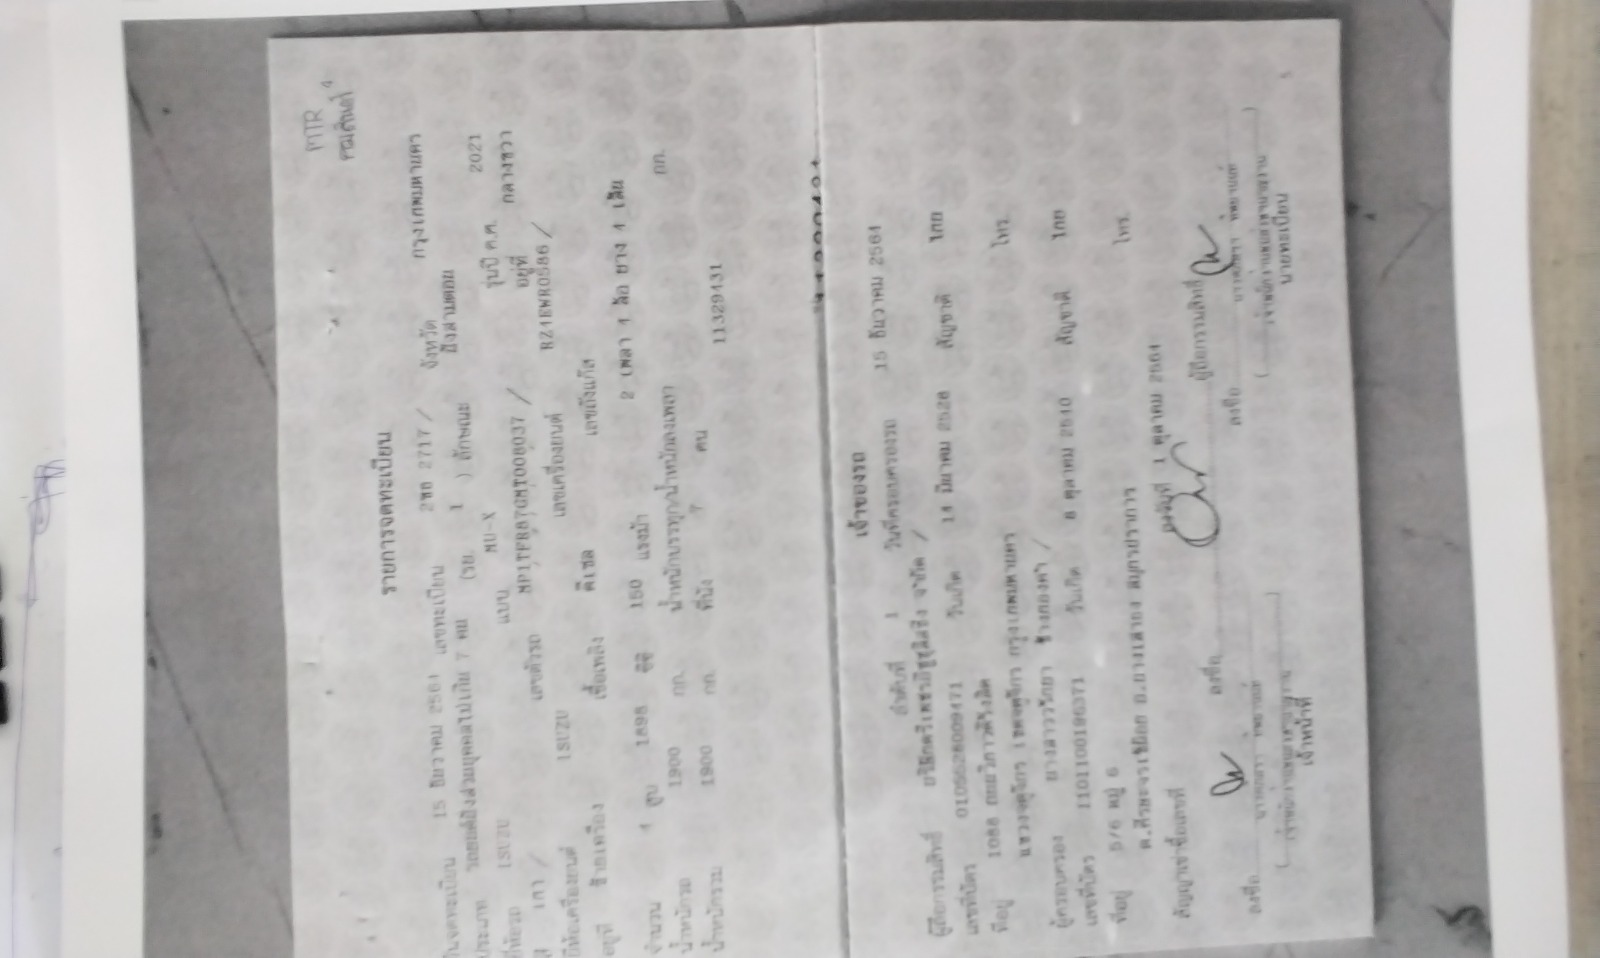 MTR
รายการจดทะเบียน
วันจดทะเบียน 15 ธันวาคม 2564 เลขทะเบียน 2ขถ 2717 / จังหวัด กรุงเทพมหานคร
ประเภท รถยนต์นั่งส่วนบุคคลไม่เกิน 7 คน (รย. 1 ) ลักษณะ นั่งสามตอน
ยี่ห้อรถ ISUZU แบบ MU-X รุ่นปี ค.ศ. 2021
สี เทา / เลขตัวรถ MP1TFR87GMT008037 / อยู่ที่ กลางขวา
ยี่ห้อเครื่องยนต์ ISUZU เลขเครื่องยนต์ RZ4EWR0586 /
อยู่ที่ ซ้ายเครื่อง เชื้อเพลิง ดีเซล เลขถังแก๊ส
จำนวน 4 สูบ 1898 ซีซี 150 แรงม้า 2 เพลา 4 ล้อ ยาง 4 เส้น
น้ำหนักรถ 1900 กก. น้ำหนักบรรทุก/น้ำหนักลงเพลา กก.
น้ำหนักรวม 1900 กก. ที่นั่ง 7 คน 11329431
เจ้าของรถ
ลำดับที่ 1 วันที่ครอบครองรถ 15 ธันวาคม 2564
ผู้ถือกรรมสิทธิ์ จำกัด /
เลขที่บัตร 0105528009471 วันเกิด 14 มีนาคม 2528 สัญชาติ ไทย
ที่อยู่ 1088 ถนนวิภาวดีรังสิต โทร.
แขวงจตุจักร เขตจตุจักร กรุงเทพมหานคร
ผู้ครอบครอง นางสาว ช้างทองคำ /
เลขที่บัตร 1101100196371 วันเกิด 8 ตุลาคม 2540 สัญชาติ ไทย
ที่อยู่ 5/6 หมู่ 6 โทร.
ต.ศีรษะจรเข้น้อย อ.บางเสาธง สมุทรปราการ
สัญญาเช่าซื้อเลขที่ ลงวันที่ 1 ตุลาคม 2564
ผู้ถือกรรมสิทธิ์
ลงชื่อ
ลงชื่อ
ลงชื่อ
เจ้าหน้าที่
นายทะเบียน